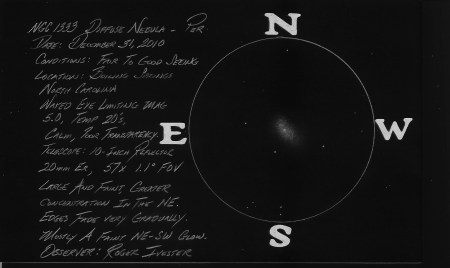 NGC 1333 Diffuse Nebula - Per
Date: December 31, 2010
Conditions: Fair To Good Seeing
Location: Boiling Springs
North Carolina
Naked Eye Limiting Mag
5.0, Temp 20's,
Calm, Poor Transparency.
Telescope: 10-Inch Reflector
20mm Er, 57x 1.1° FOV
Large And Faint, Greater
Concentration In The NE.
Edges Fade Very Gradually.
Mostly A Faint NE-SW Glow.
Observer: Roger Ivester
N
E
W
S